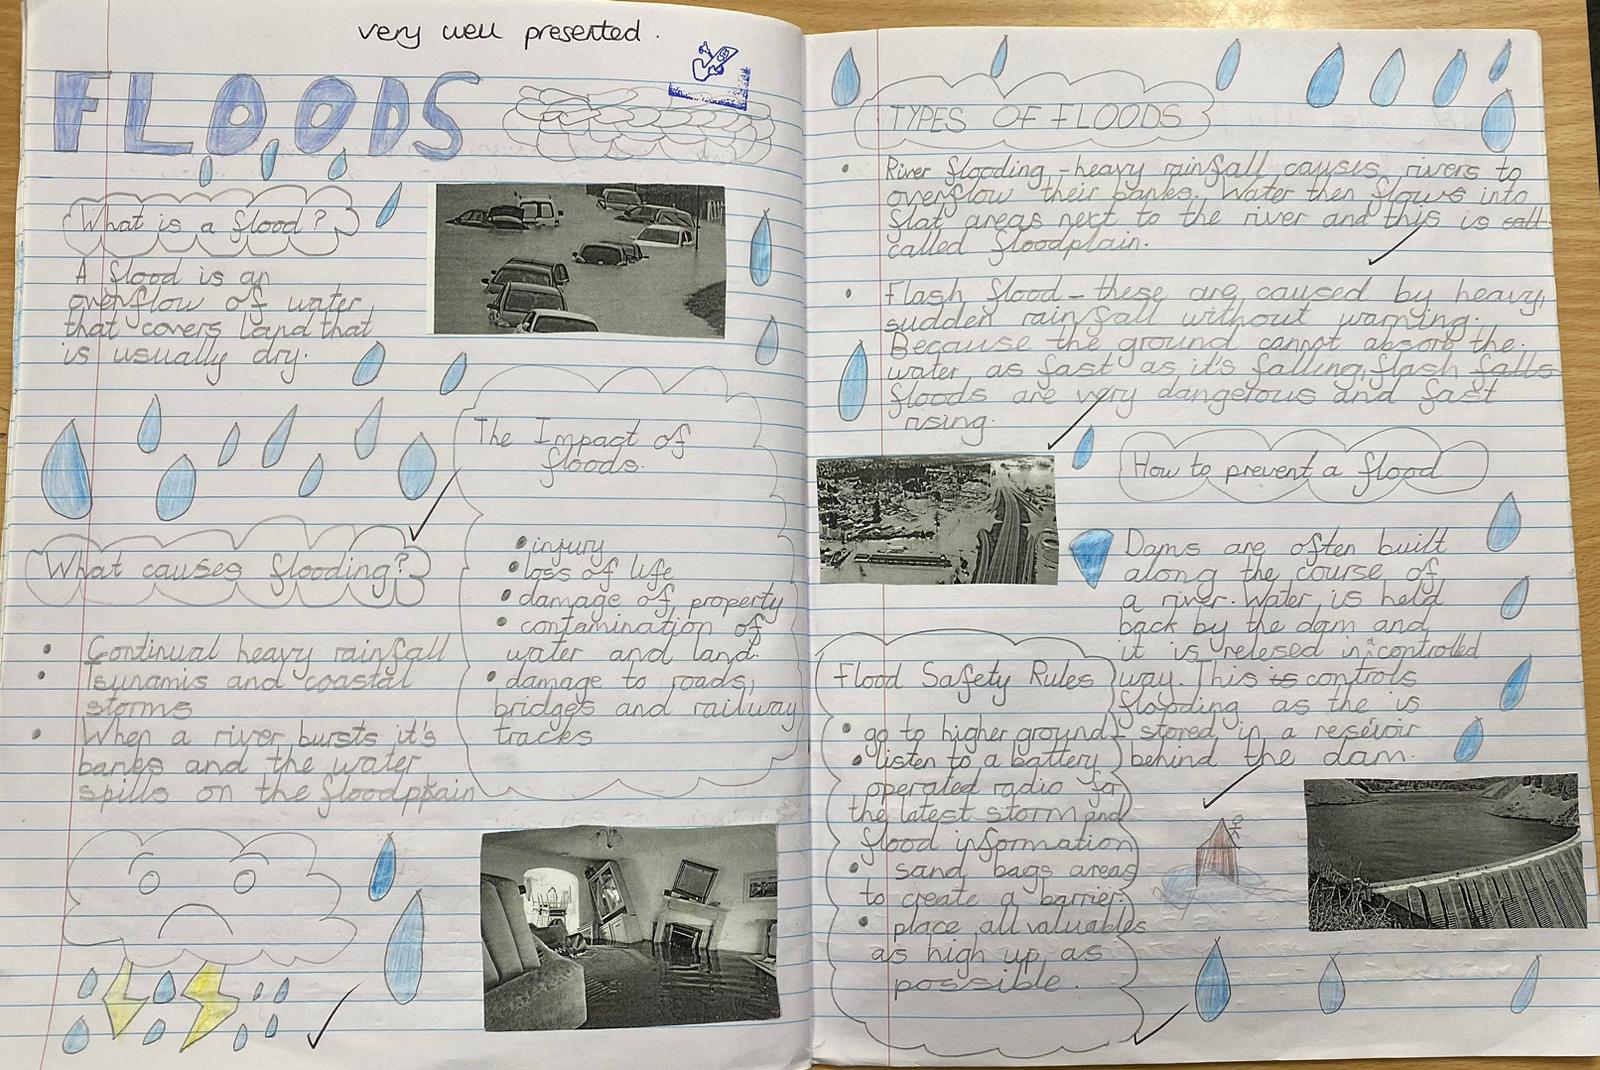 very well presented.
FLOODS
What is a flood?
A flood is an
overflow of water
that covers land that
is usually dry.
What causes flooding?
Continual heavy rainfall
Tsunamis and coastal
storms
When a river bursts it's
banks and the water
spills on the floodplain
The Impact of
floods.
injury
loss of life
damage of property
contamination of
water and land.
damage to roads,
bridges and railway
tracks
TYPES OF FLOODS
River flooding - heavy rainfall causes rivers to
overflow their banks. Water then flows into
flat areas next to the river and this is call
called floodplain.
Flash flood - these are caused by heavy,
sudden rainfall without warning.
Because the ground cannot absorb the
water as fast as it's falling, flash falls
floods are very dangerous and fast
rising.
How to prevent a flood
Dams are often built
along the course of
a river. Water is held
back by the dam and
it is relesed in a controlled
way. This is controls
flooding as the is
stored in a reseivoir
behind the dam.
Flood Safety Rules
go to higher ground
listen to a battery
operated radio for
the latest storm and
flood information
sand bags areas
to create a barrier.
place all valuables
as high up as
possible.